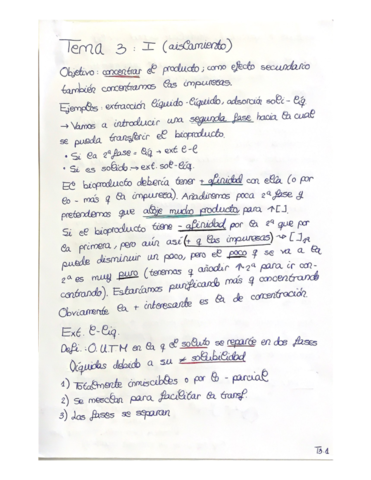 Tema 3 : I (aislamiento)
Objetivo: concentrar el producto; como efecto secundario
también concentramos las impurezas.
Ejemplos: extracción líquido-líquido, adsorción soli-líq
→ Vamos a introducir una segunda fase hacia la cual
se pueda transferir el bioproducto.
· Si la 2ª fase = líq → ext l-l
· Si es solido → ext sol-líq.
El bioproducto debería tener + afinidad con ella (o por
lo - más q la impureza). Añadiremos poca 2ª fase y
pretendemos que aloje mucho producto para ↑[ ].
Si el bioproducto tiene - afinidad por la 2ª que por
la primera, pero aún así (+ q las impurezas) → [ ]
puede disminuir un poco, pero el poco q se va a la
2ª es muy puro (tenemos q añadir ↑ 2ª para ir con-
centrando). Estaríamos purificando más q concentrando
Obviamente la + interesante es la de concentración
Ext. l-líq.
Def: O.U.TM en la q el soluto se reparte en dos fases
líquidas debido a su ≠ solubilidad
1) Totalmente inmiscibles o por lo - parcial
2) Se mezclan para facilitar la transf.
3) Las fases se separan
T3.1